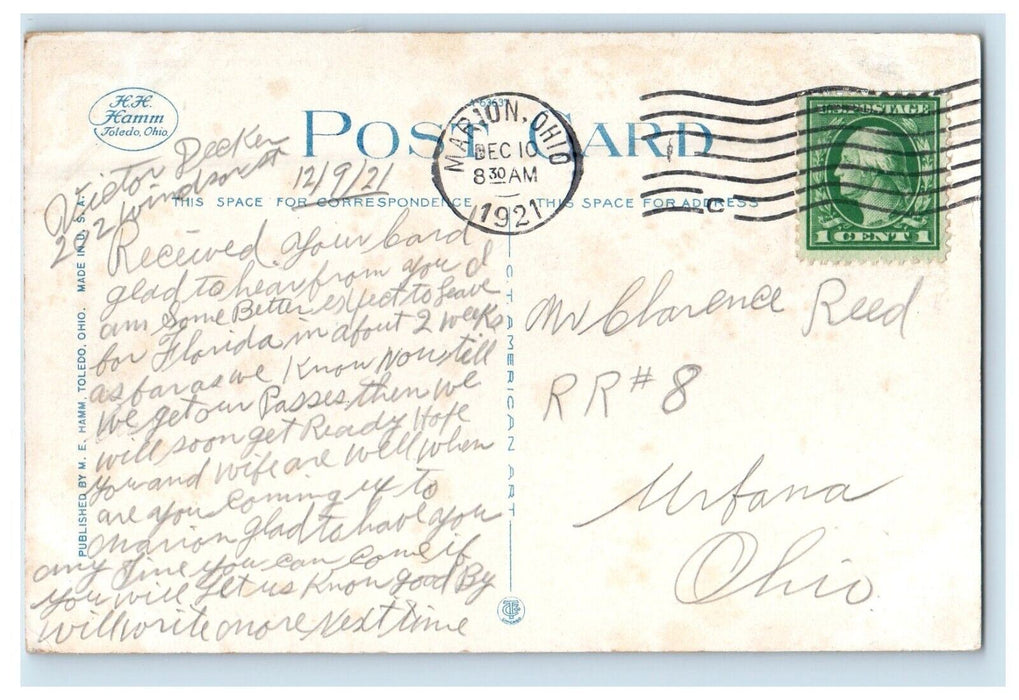 H.H.
Hamm
Toledo, Ohio.
POST CARD
MARION, OHIO
DEC 10
8 30 AM
1921
U.S. POSTAGE
1 CENT 1
C
Victor Decker
Windsor st
12/9/21
THIS SPACE FOR CORRESPONDENCE
THIS SPACE FOR ADDRESS
Received your Card
glad to hear from you I
am Some Better expect to leave
for Florida in about 2 weeks
as far as we Know Now, till
we get our Passes, then we
will soon get Ready Hope
you and wife are well when
are you Coming up to
Marion glad to have you
any time you can Come if
you will let us Know good By
will write more Next time
Mr Clarence Reed
RR # 8
Urbana
Ohio.
PUBLISHED BY M. E. HAMM, TOLEDO, OHIO. MADE IN U.S.A.
C.T. AMERICAN ART